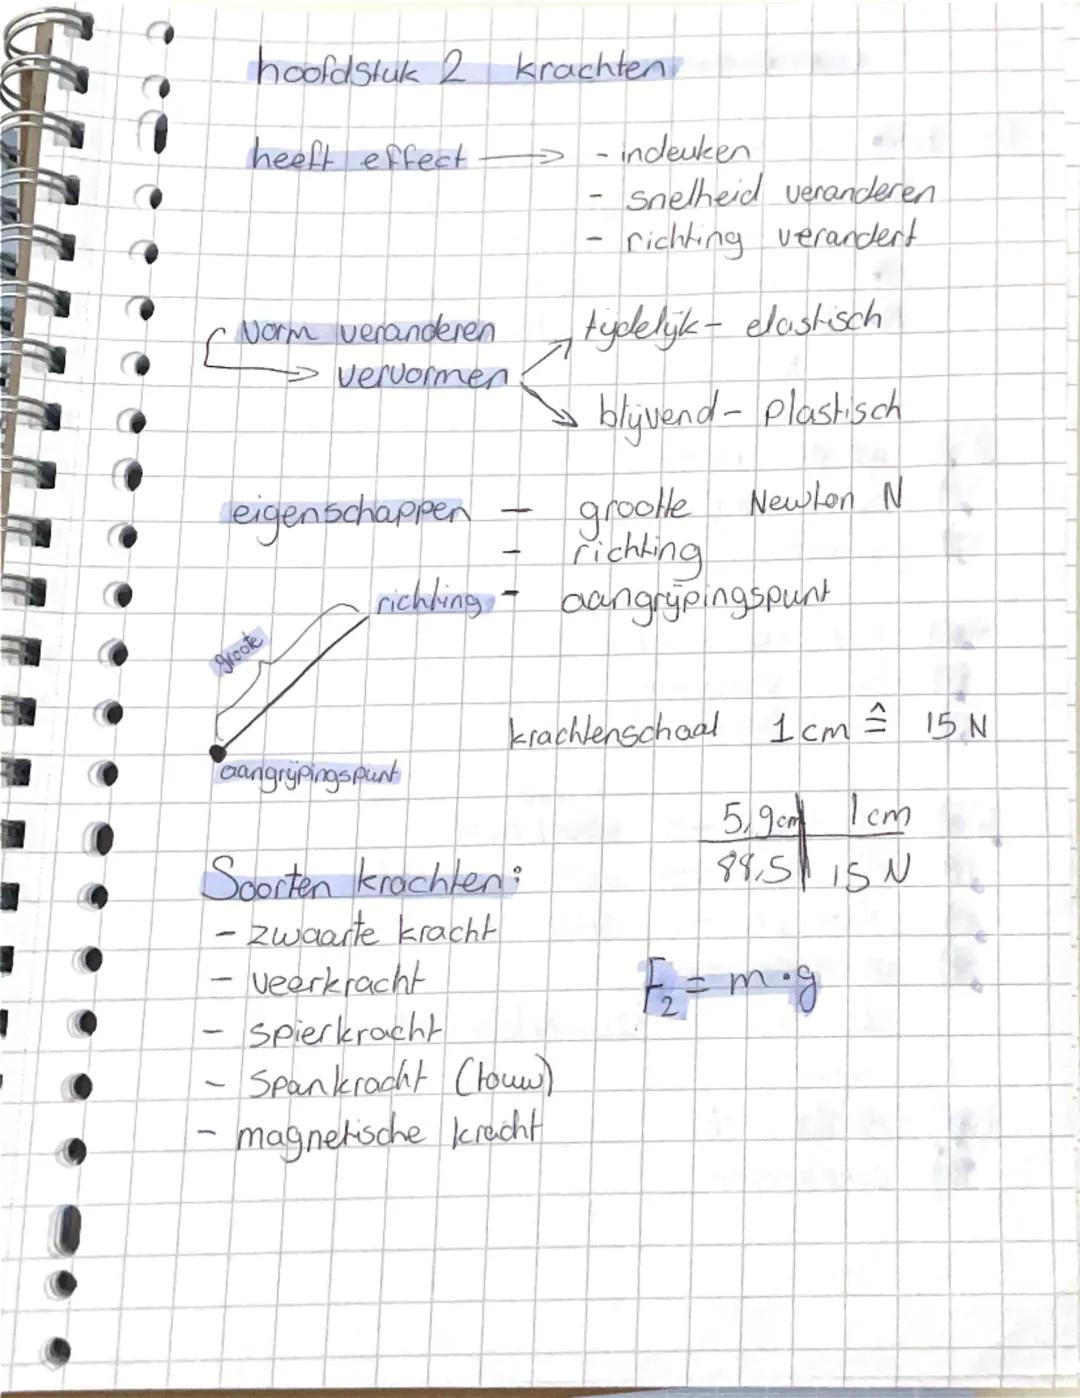 hoofdstuk 2 krachten
heeft effect → - indeuken
- snelheid veranderen
- richting verandert
Vorm veranderen
→ vervormen
tijdelijk - elastisch
blijvend - plastisch
eigenschappen - grootte Newton N
- richting
- aangrijpingspunt
richting
groote
aangrijpingspunt
krachtenschaal 1 cm ≙ 15 N
5,9cm | 1 cm
88,5 | 15 N
Soorten krachten:
- zwaarte kracht
- veerkracht
- spierkracht
- Spankracht (touw)
- magnetische kracht
F₂ = m · g